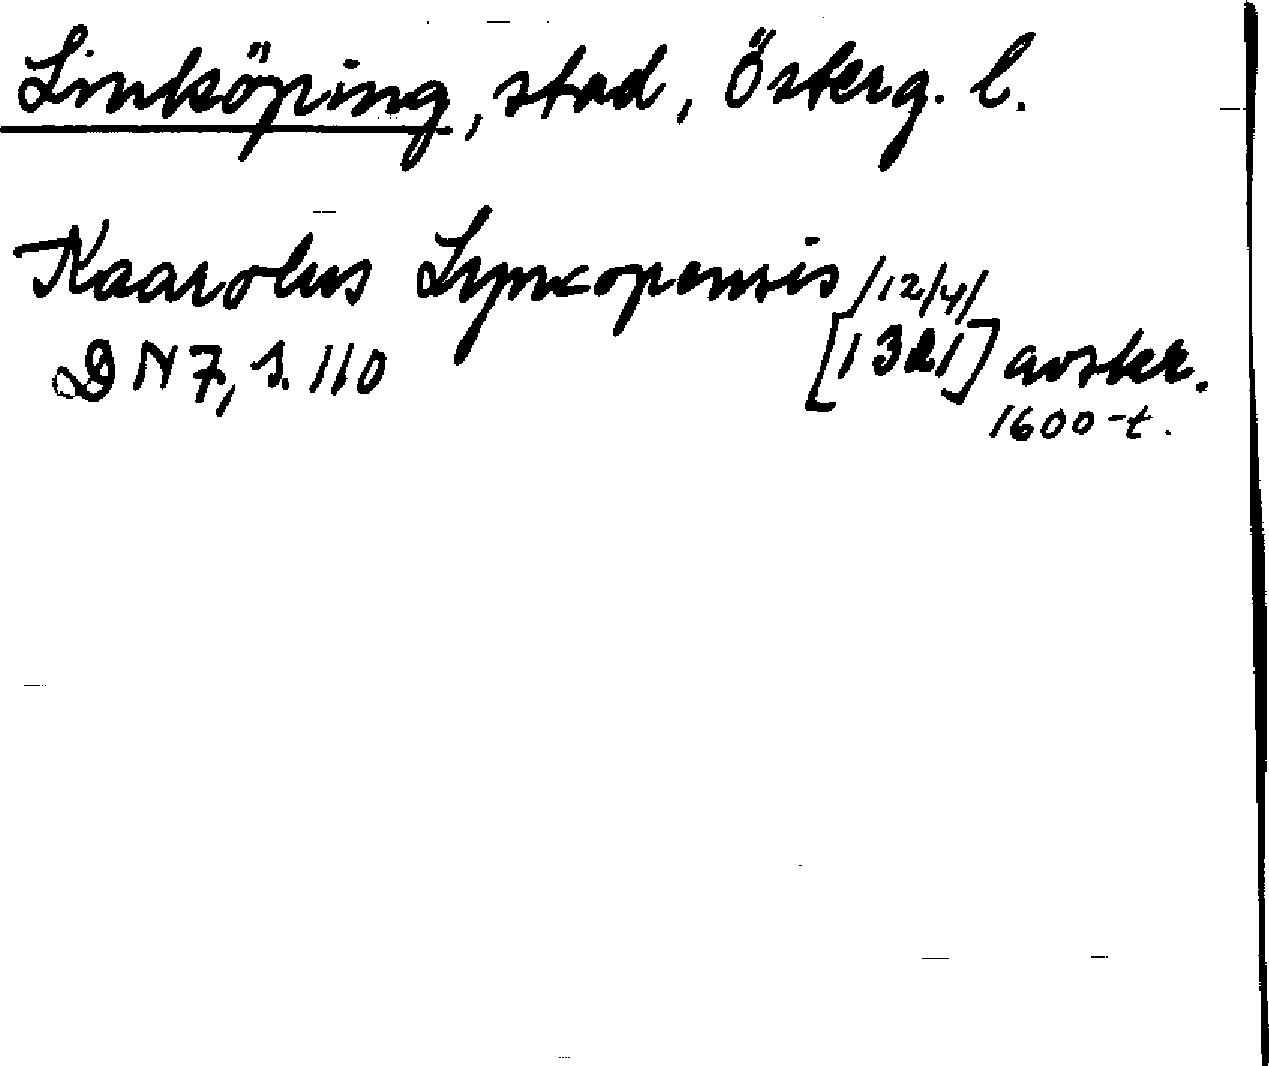 Linköping, stad, Österg. l.
Kaarolus Lyncopensis /12/4/
DN 7, s. 110 [1321] avskr.
1600-t.